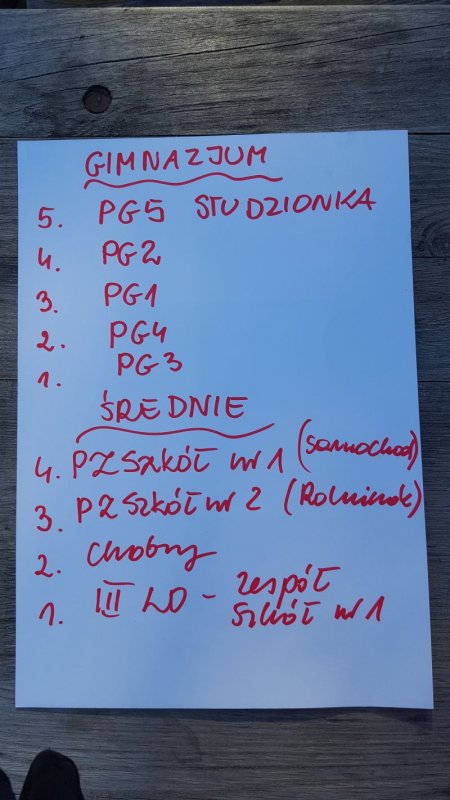 GIMNAZJUM
5. PG5 STUDZIONKA
4. PG2
3. PG1
2. PG4
1. PG3
ŚREDNIE
4. PZSZKÓŁ nr 1 (Samochod)
3. PZ SZKÓŁ nr 2 (Rolniczok)
2. Chrobry
1. III LO - zespół
szkół nr 1